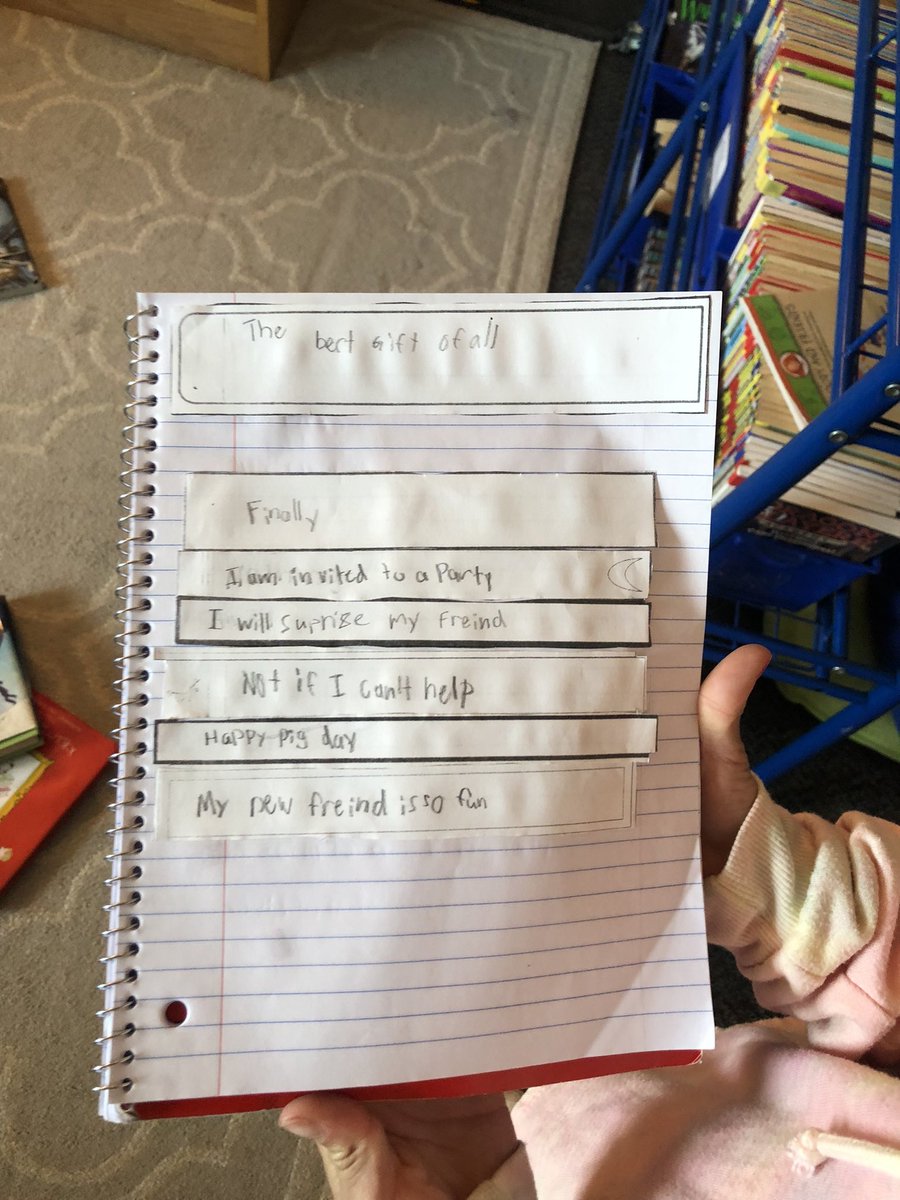 The best Gift of all
Finally
I am invited to a Party
I will suprize my freind
Not if I can't help
Happy pig day
My new freind is so fun